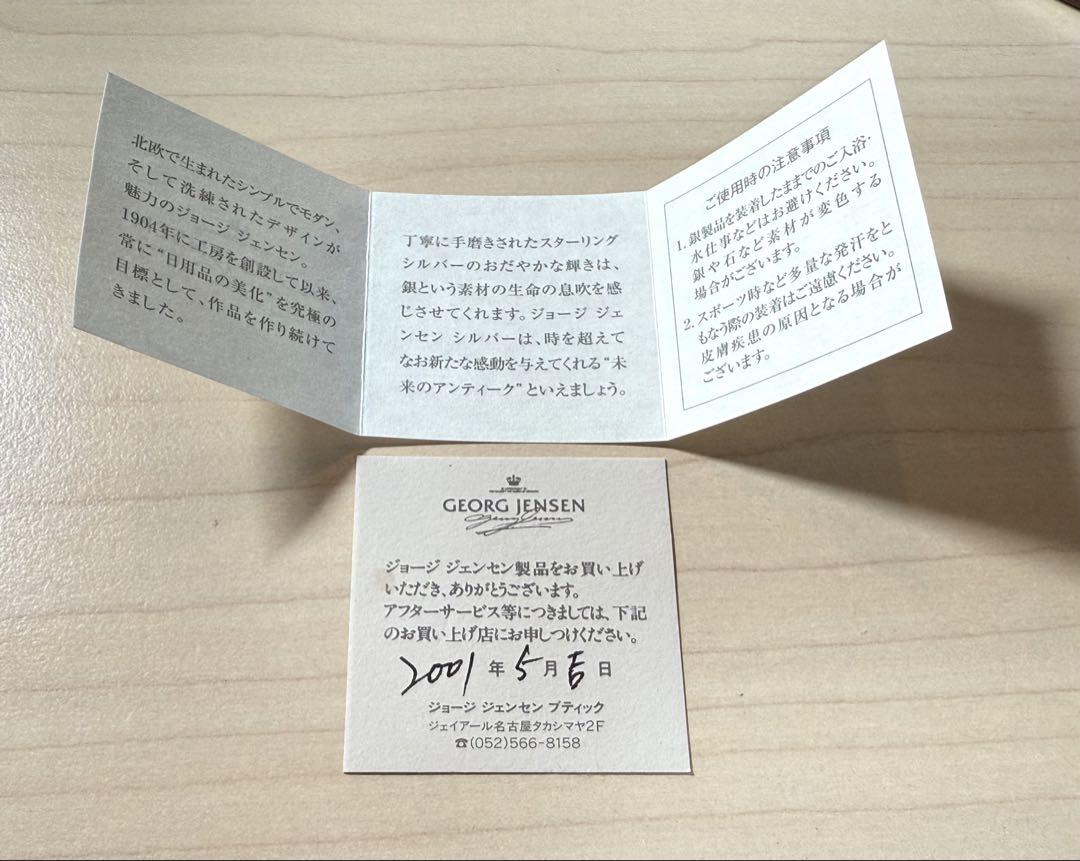 北欧で生まれたシンプルでモダン、
そして洗練されたデザインが
魅力のジョージ ジェンセン。
1904年に工房を創設して以来、
常に“日用品の美化”を究極の
目標として、作品を作り続けて
きました。
丁寧に手磨きされたスターリング
シルバーのおだやかな輝きは、
銀という素材の生命の息吹を感
じさせてくれます。ジョージ ジェ
ンセン シルバーは、時を超えて
なお新たな感動を与えてくれる“未
来のアンティーク”といえましょう。
ご使用時の注意事項
1. 銀製品を装着したままでのご入浴・
水仕事などはお避けください。
銀や石など素材が変色する
場合がございます。
2. スポーツ時など多量な発汗をと
もなう際の装着はご遠慮ください。
皮膚疾患の原因となる場合が
ございます。
GEORG JENSEN
ジョージ ジェンセン製品をお買い上げ
いただき、ありがとうございます。
アフターサービス等につきましては、下記
のお買い上げ店にお申しつけください。
2001年5月吉日
ジョージ ジェンセン ブティック
ジェイアール名古屋タカシマヤ2F
☎(052)566-8158